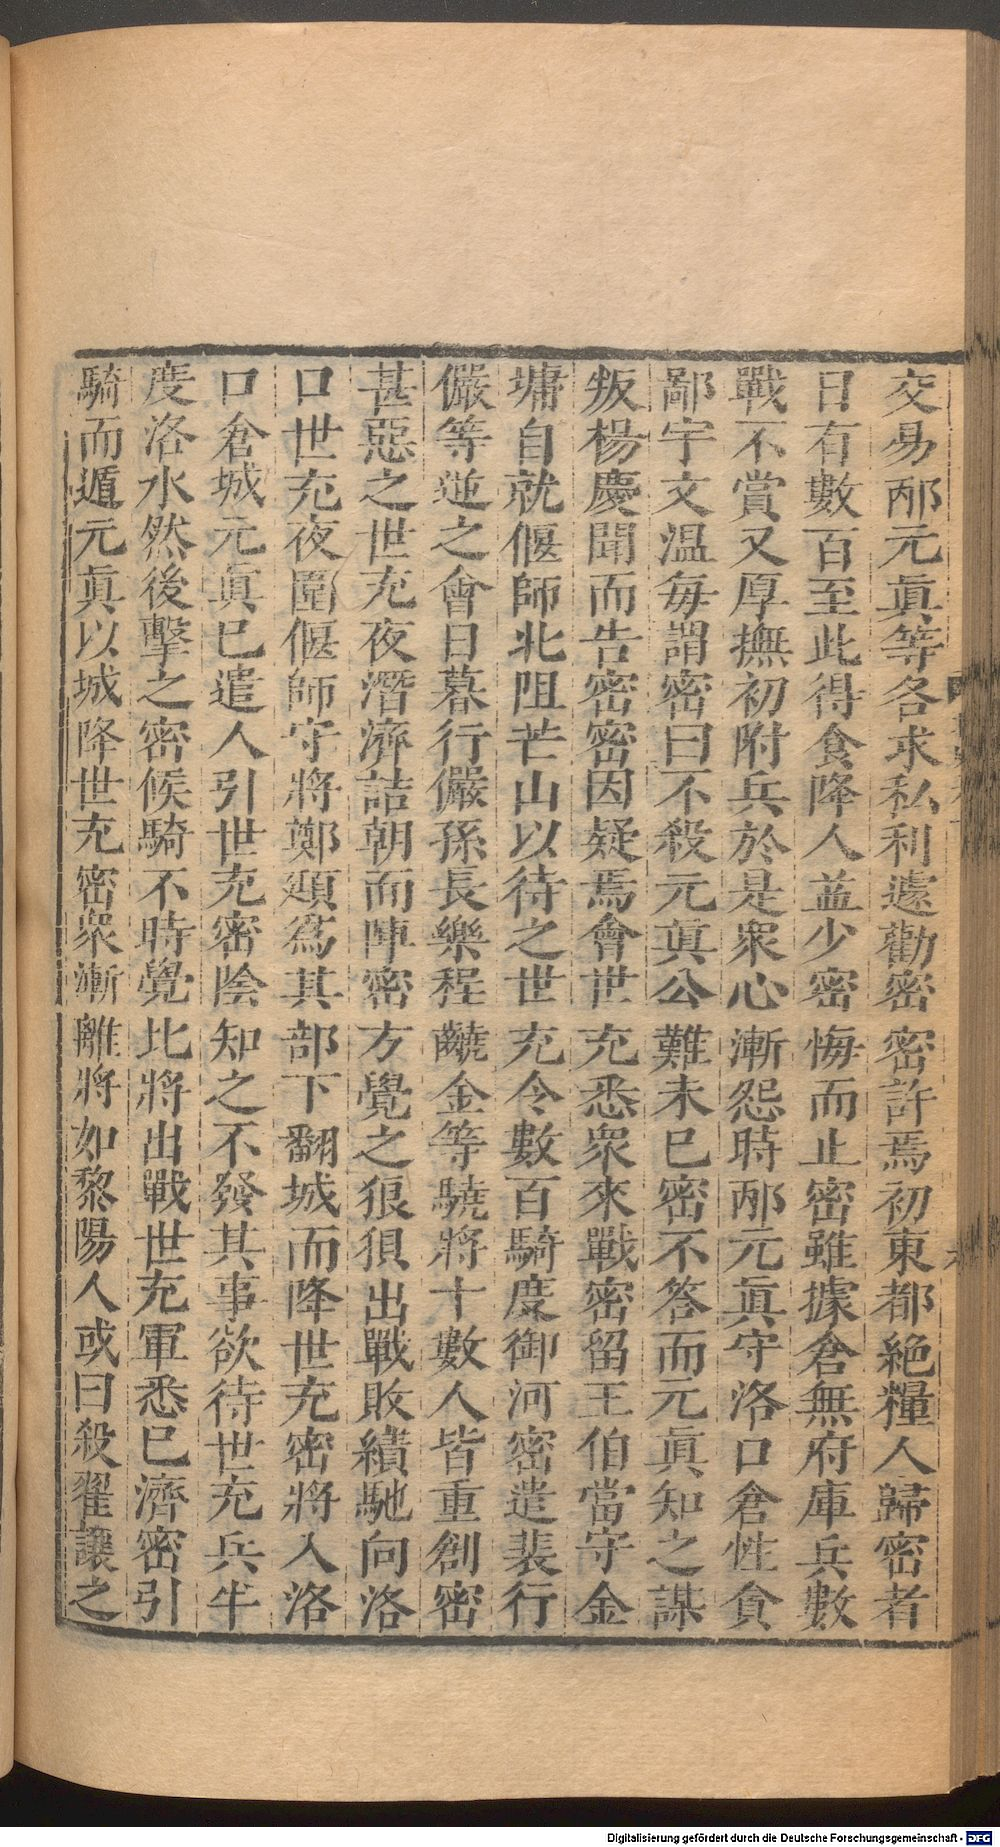 交易邴元真等各求私利遽勸密密許焉初東都絶糧人歸密者
日有數百至此得食降人益少密悔而止密雖據倉無府庫兵數
戰不賞又厚撫初附兵於是衆心漸怨時邴元真守洛口倉性貪
鄙宇文溫每謂密曰不殺元真公難未已密不答而元真知之謀
叛楊慶聞而告密密因疑焉會世充悉衆來戰密留王伯當守金
墉自就偃師北阻芒山以待之世充令數百騎度御河密遣裴行
儼等逆之會日暮行儼孫長樂程齩金等驍將十數人皆重創密
甚惡之世充夜潛濟詰朝而陣密方覺之狼狽出戰敗績馳向洛
口世充夜圍偃師守將鄭頲爲其部下翻城而降世充密將入洛
口倉城元真已遣人引世充密陰知之不發其事欲待世充兵半
度洛水然後擊之密候騎不時覺比將出戰世充軍悉已濟密引
騎而遁元真以城降世充密衆漸離將如黎陽人或曰殺翟讓之
Digitalisierung gefördert durch die Deutsche Forschungsgemeinschaft - DFG